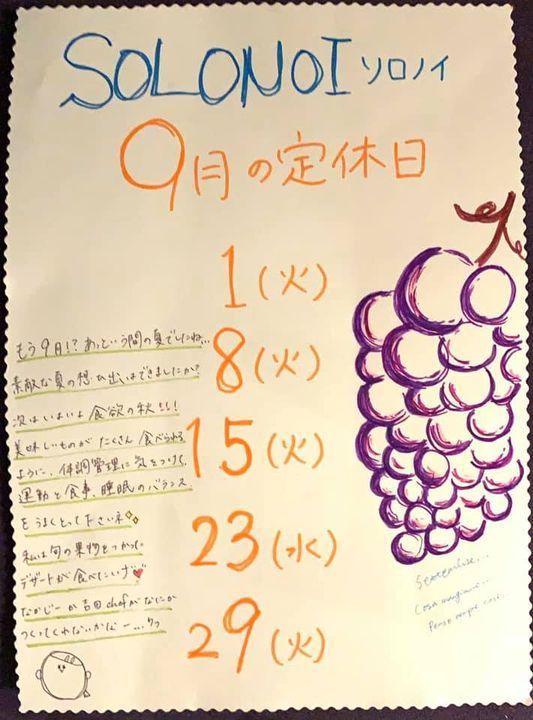 SOLONOI ソロノイ
9月の定休日
1(火)
8(火)
15(火)
23(水)
29(火)
もう9月!? あっという間の夏でしたね...
素敵な夏の想い出はできましたか?
次はいよいよ食欲の秋!!!
美味しいものがたくさん食べられる
ように、体調管理に気をつけて、
運動と食事、睡眠のバランス
をうまくとって下さいネ
私は旬の果物をつかった
デザートが食べたいナ♥
なかじーか吉田chefがなにか
つくってくれないかなー...
Settembre...
Cosa mangiamo...
Penso sempre così...